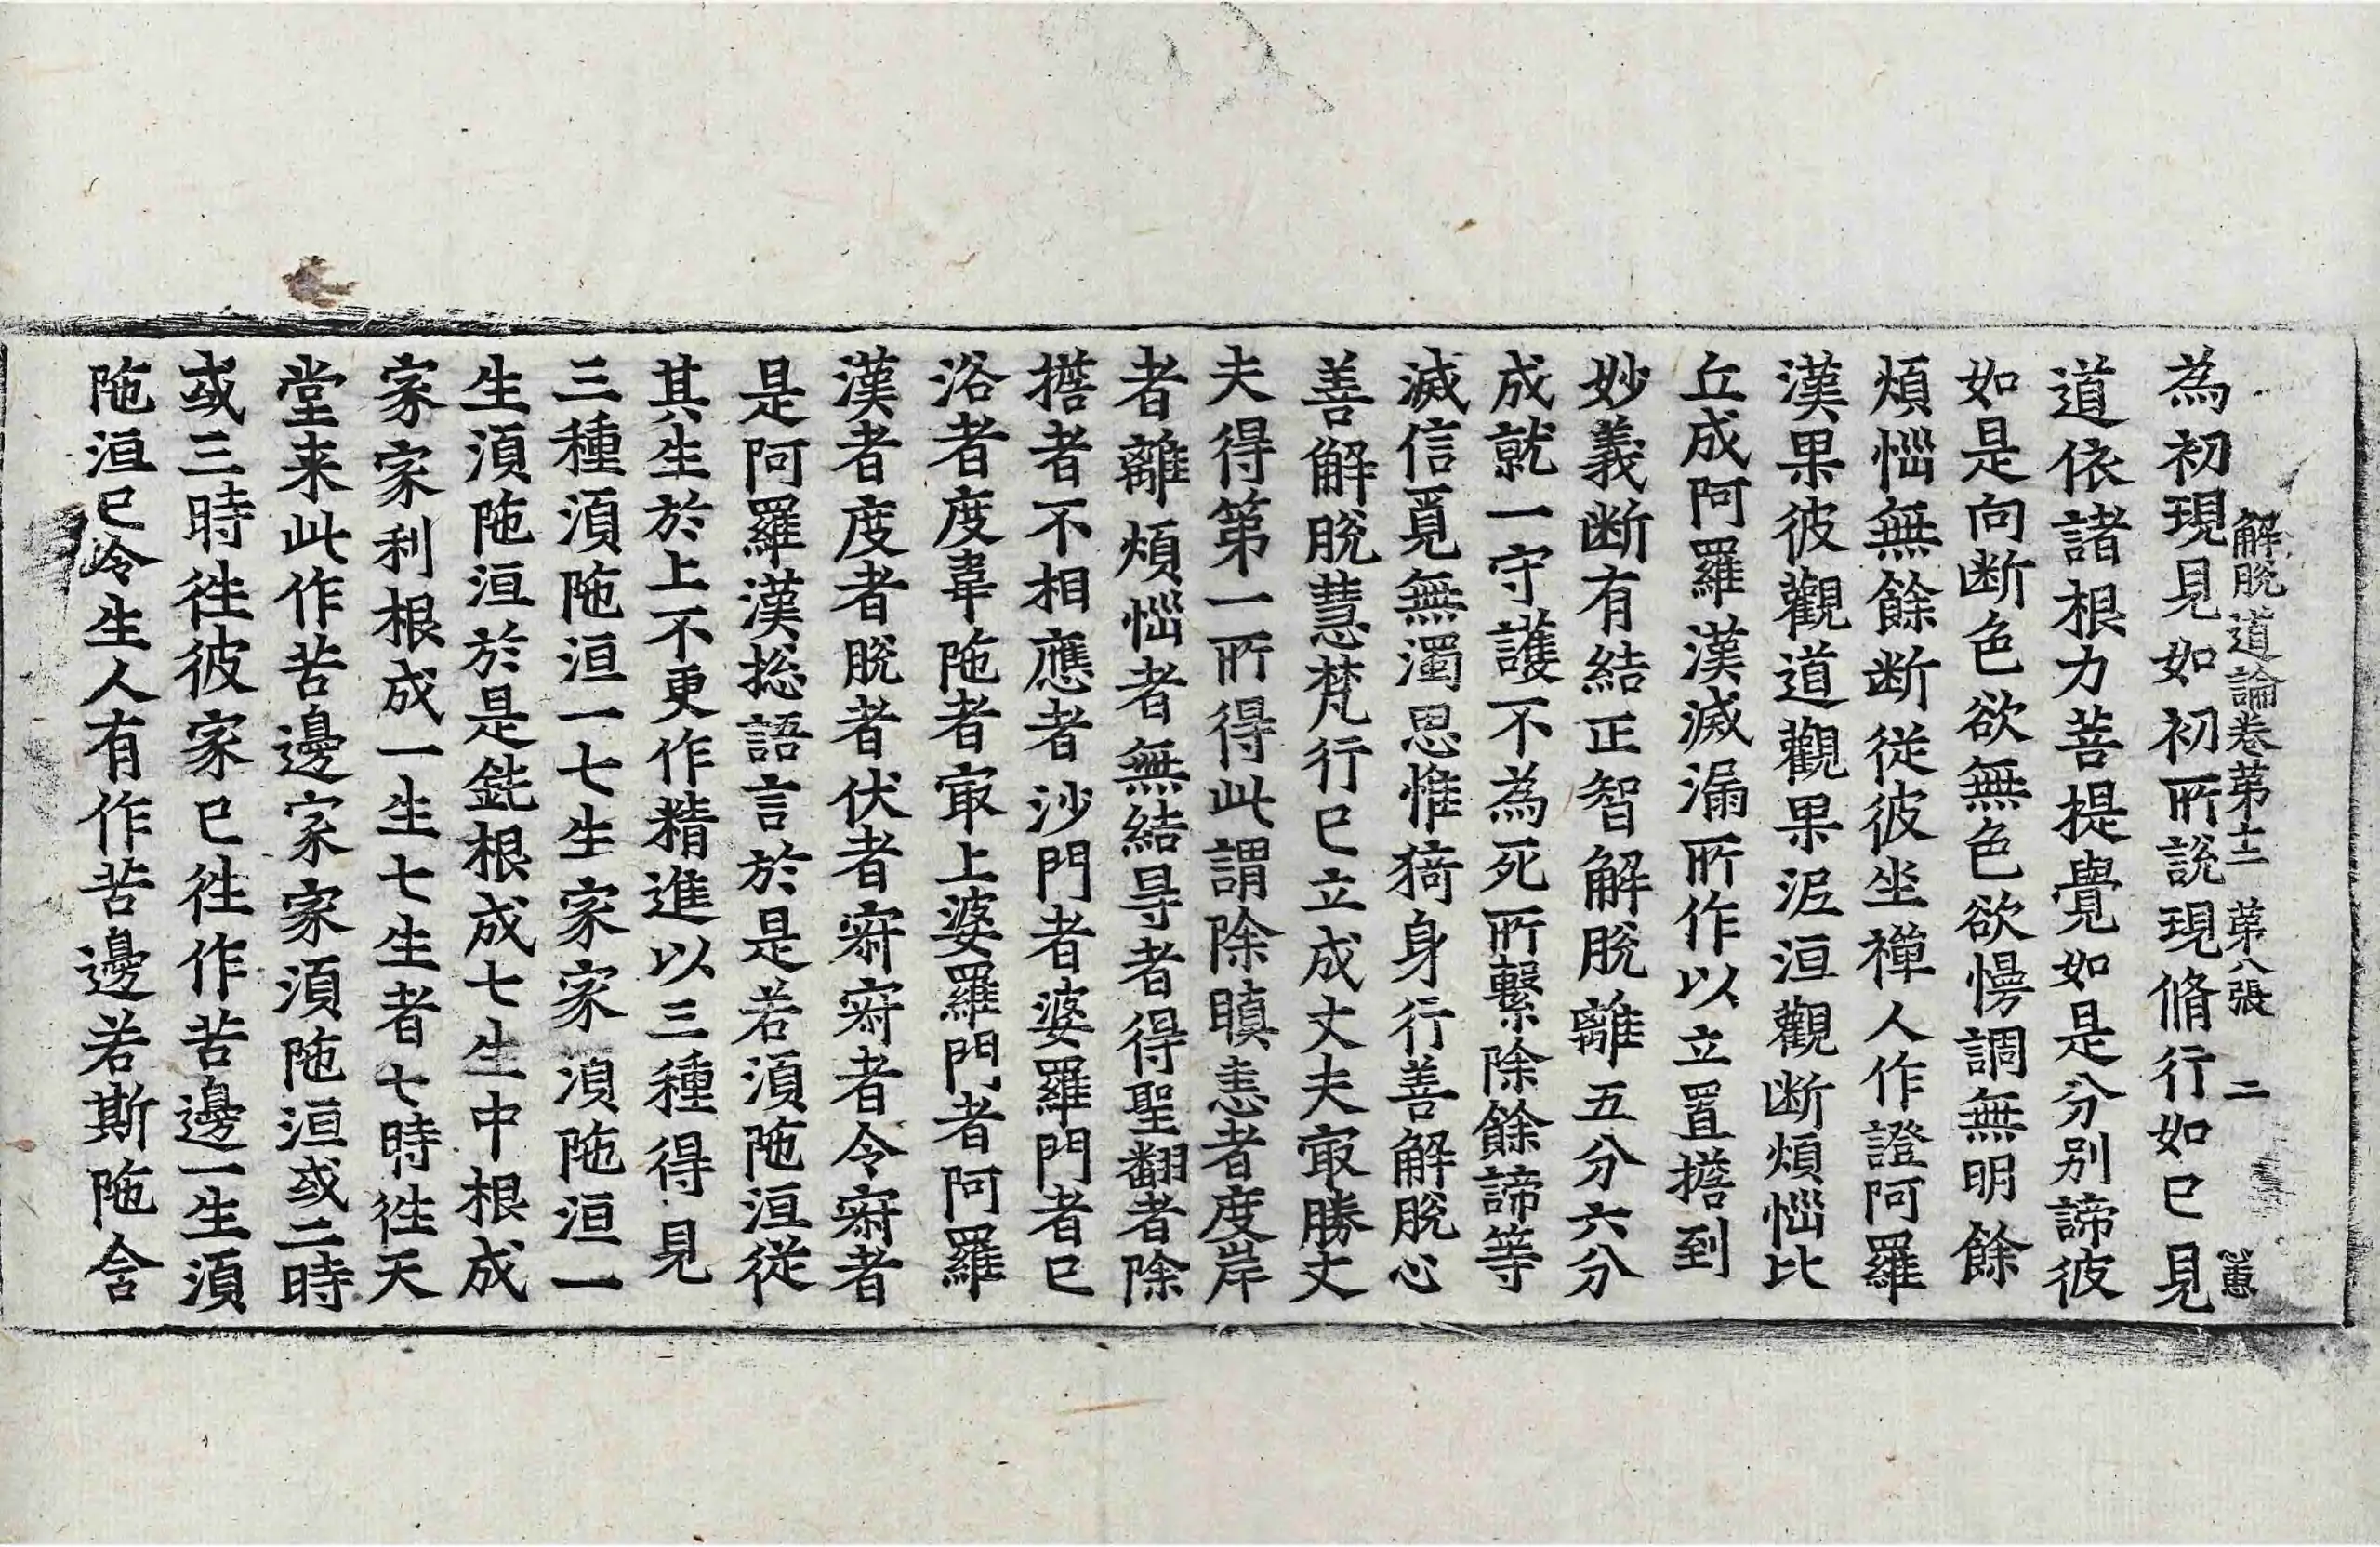 解脫道論卷第十二 第八張 二
為初現見如初所說現脩行如已見
道依諸根力菩提覺如是分別諦彼
如是向断色欲無色欲慢調無明餘
煩惱無餘断從彼坐禪人作證阿羅
漢果彼觀道觀果泥洹觀断煩惱比
丘成阿羅漢滅漏所作以立置擔到
妙義断有結正智解脫離五分六分
成就一守護不為死所繫除餘諦等
滅信覓無濁思惟猗身行善解脫心
善解脫慧梵行已立成丈夫㝡勝丈
夫得第一所得此謂除瞋恚者度岸
者離煩惱者無結㝵者得聖翻者除
擔者不相應者沙門者婆羅門者已
洛者度韋陁者㝡上婆羅門者阿羅
漢者度者脫者伏者寂寂者令寂者
是阿羅漢捴語言於是若湏陁洹從
其生於上不更作精進以三種得見
三種湏陁洹一七生家家湏陁洹一
生湏陁洹於是鈍根成七生中根成
家家利根成一生七生者七時徃天
堂来此作苦邊家家湏陁洹或二時
或三時徃彼家已徃作苦邊一生湏
陁洹已令生人有作苦邊若斯陁含